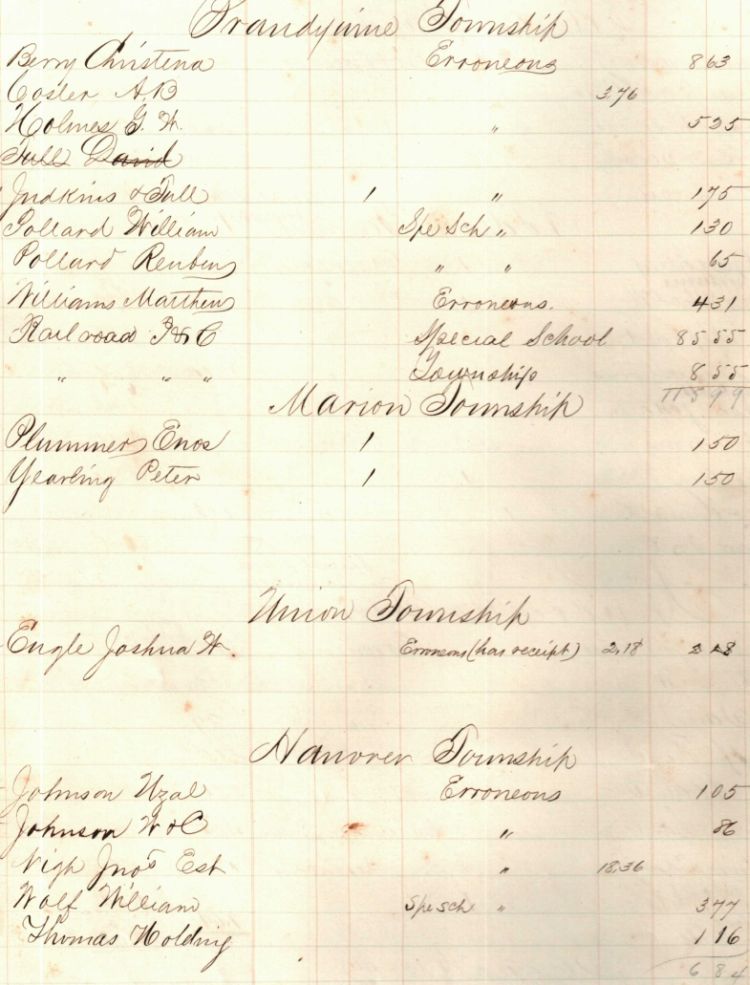 Brandywine Township
Berry Christena Erroneous 863
Coster A.B 3,76
Holmes G. W. " 525
Tull David
Judkins & Tull 1 " 175
Pollard William Spe Sch " 130
Pollard Reuben " " 65
Williams Matthew Erroneous. 431
Railroad & C Special School 85 55
" " " Township 8 55
118 99
Marion Township
Plummer Enos 1 150
Yearling Peter 1 150
Union Township
Engle Joshua W. Erroneous (has receipt) 2,18 2 18
Hanover Township
Johnson Uzal Erroneous 105
Johnson W & C " 86
Nigh Jno's Est " 18,36
Wolf William Spe sch " 377
Thomas Holding 116
6 84